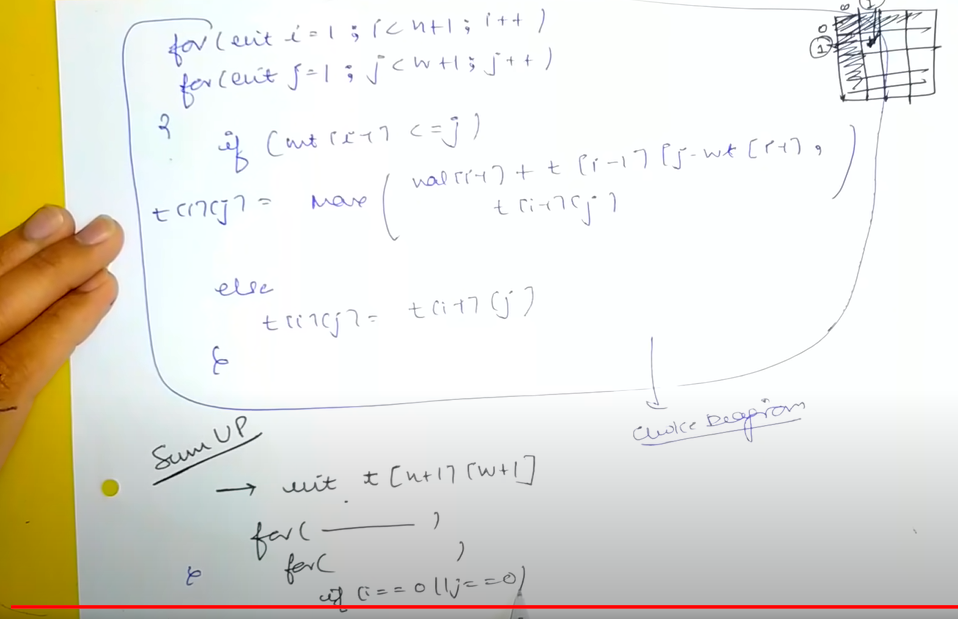 for(int i=1; i<n+1; i++)
for(int j=1; j<w+1; j++)
{
if (wt[i-1] <=j)
t[i][j] = max( val[i-1] + t[i-1][j-wt[i-1],
t[i-1][j] )
else
t[i][j] = t[i-1][j]
}
Choice Diagram
Sum UP
→ int t[n+1][w+1]
for( )
for( )
if (i==0||j==0)